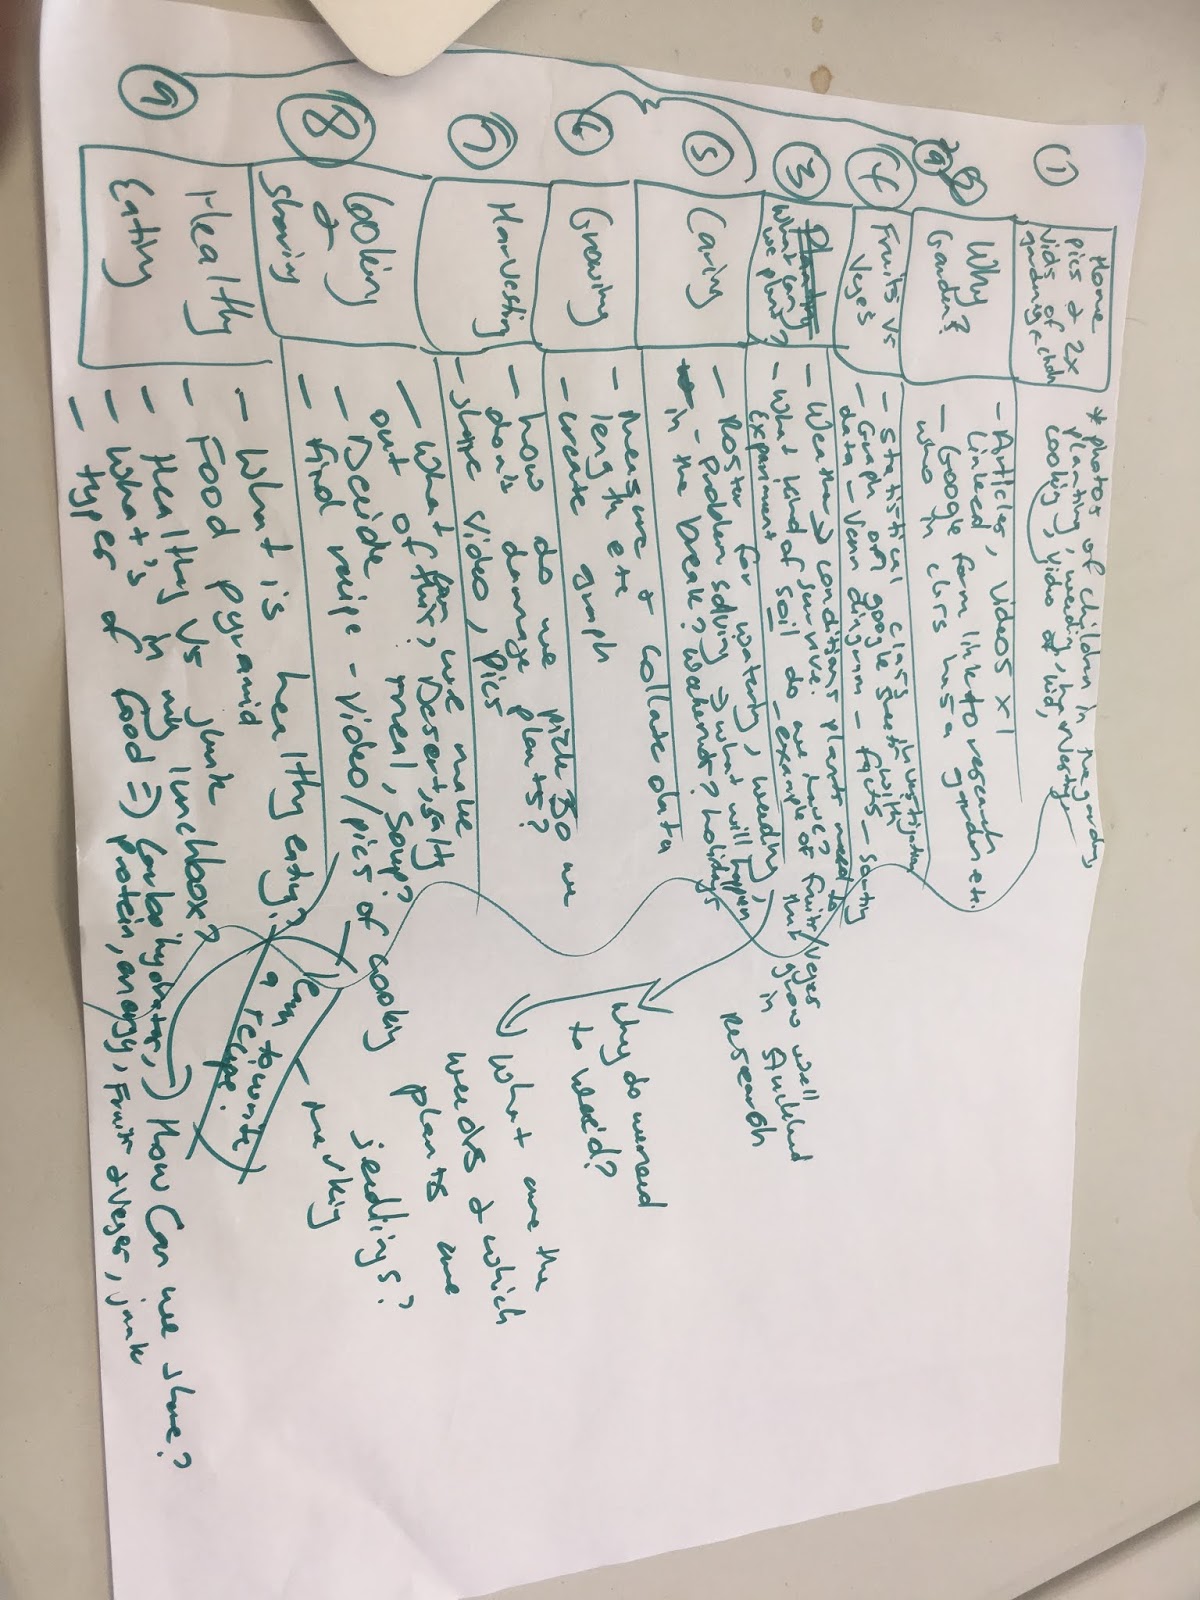 1
Home
pics & 2x
vids of
* photos of children in the garden,
planting, weeding, harvesting
cooking, video of vid,
2
Why
Garden?
- Articles, videos x1
linked
- Google form link to research
who in clrs has a garden etc.
4
Fruits vs
Veges
- Statistical class investigation
- Graph on google sheet with
data - Venn diagram - facts - sorting
3
Planting
What can
we plant?
- Weather → conditions plants need to
survive.
- What kind of soil do we have?
Experiment
- example of fruits/veges
that grow well
in Auckland
research
5
Caring
- Roster for watering, weeding,
- problem solving → what will happen
- in the break? weekend? holidays
Why do we need
to weed?
What are the
weeds & which
plants are
seedlings?
6
Growing
- Measure & collate data
length etc
- create graph
7
Harvesting
- how do we pick so we
don't damage plants?
- share video, pics
8
Cooking
&
Sharing
- What can we make
out of this, Desert, salty
meal, soup?
- Decide
- find recipe - video/pics of cooking
- marking
learn to write
a recipe.
9
Healthy
Eating
- What is healthy eating?
- Food pyramid
- Healthy vs junk
- What's in my lunchbox?
- types of food => Carbohydrates,
protein, energy, Fruit & Veges, junk
How can we share?